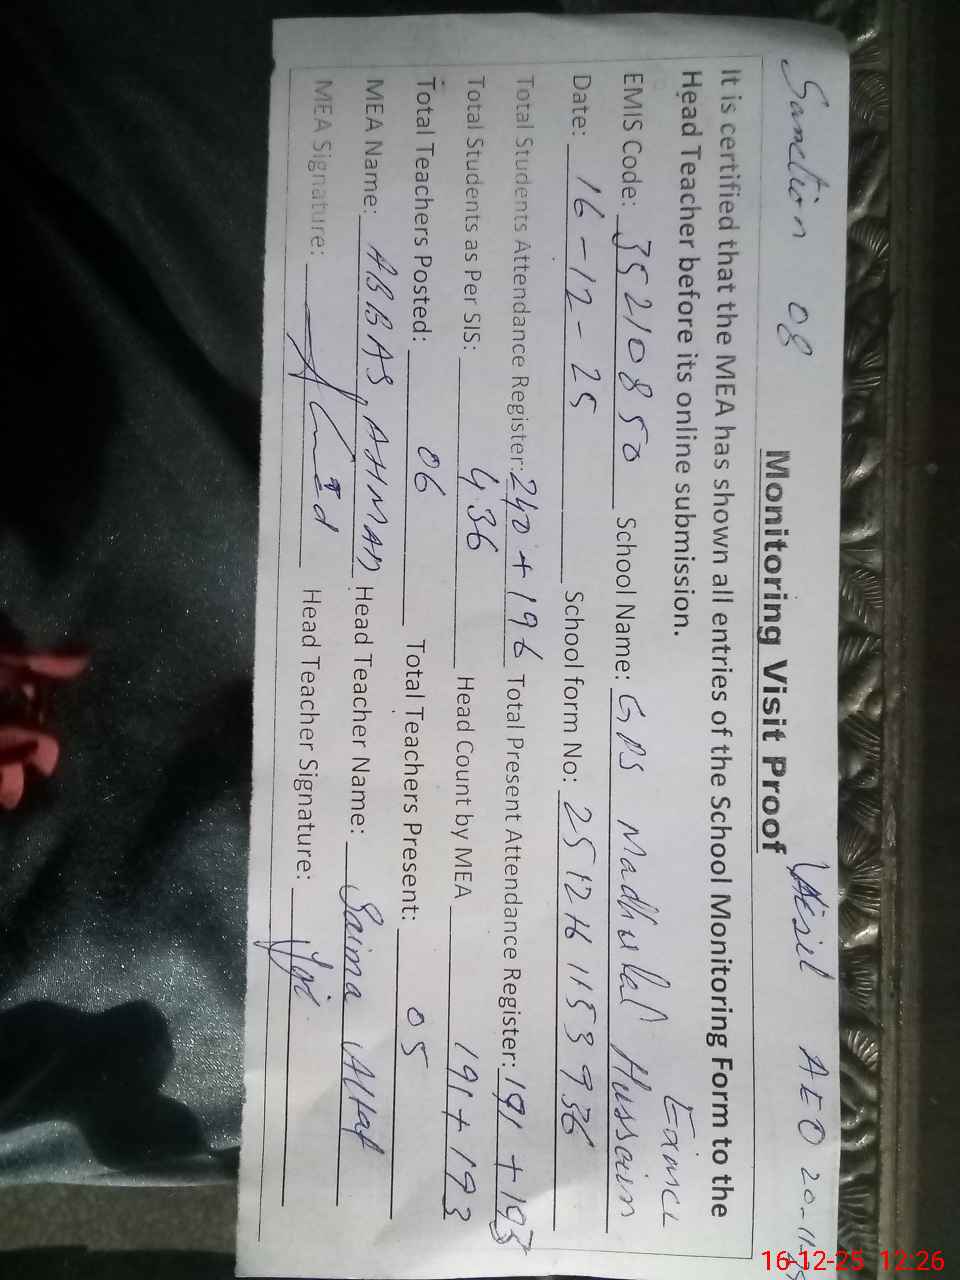 Sanction 08 Visit AEO 20-11-25
Monitoring Visit Proof
It is certified that the MEA has shown all entries of the School Monitoring Form to the
Head Teacher before its online submission.
EMIS Code: 35210850 School Name: GPS Madhulal Hussain
Date: 16-12-25 School form No: 2512161153936
Total Students Attendance Register: 240 + 196 Total Present Attendance Register: 191 + 193
Total Students as Per SIS: 436 Head Count by MEA 191 + 193
Total Teachers Posted: 06 Total Teachers Present: 05
MEA Name: ABBAS, AHMAD Head Teacher Name: Saima Altaf
MEA Signature: Head Teacher Signature:
16-12-25 12:26